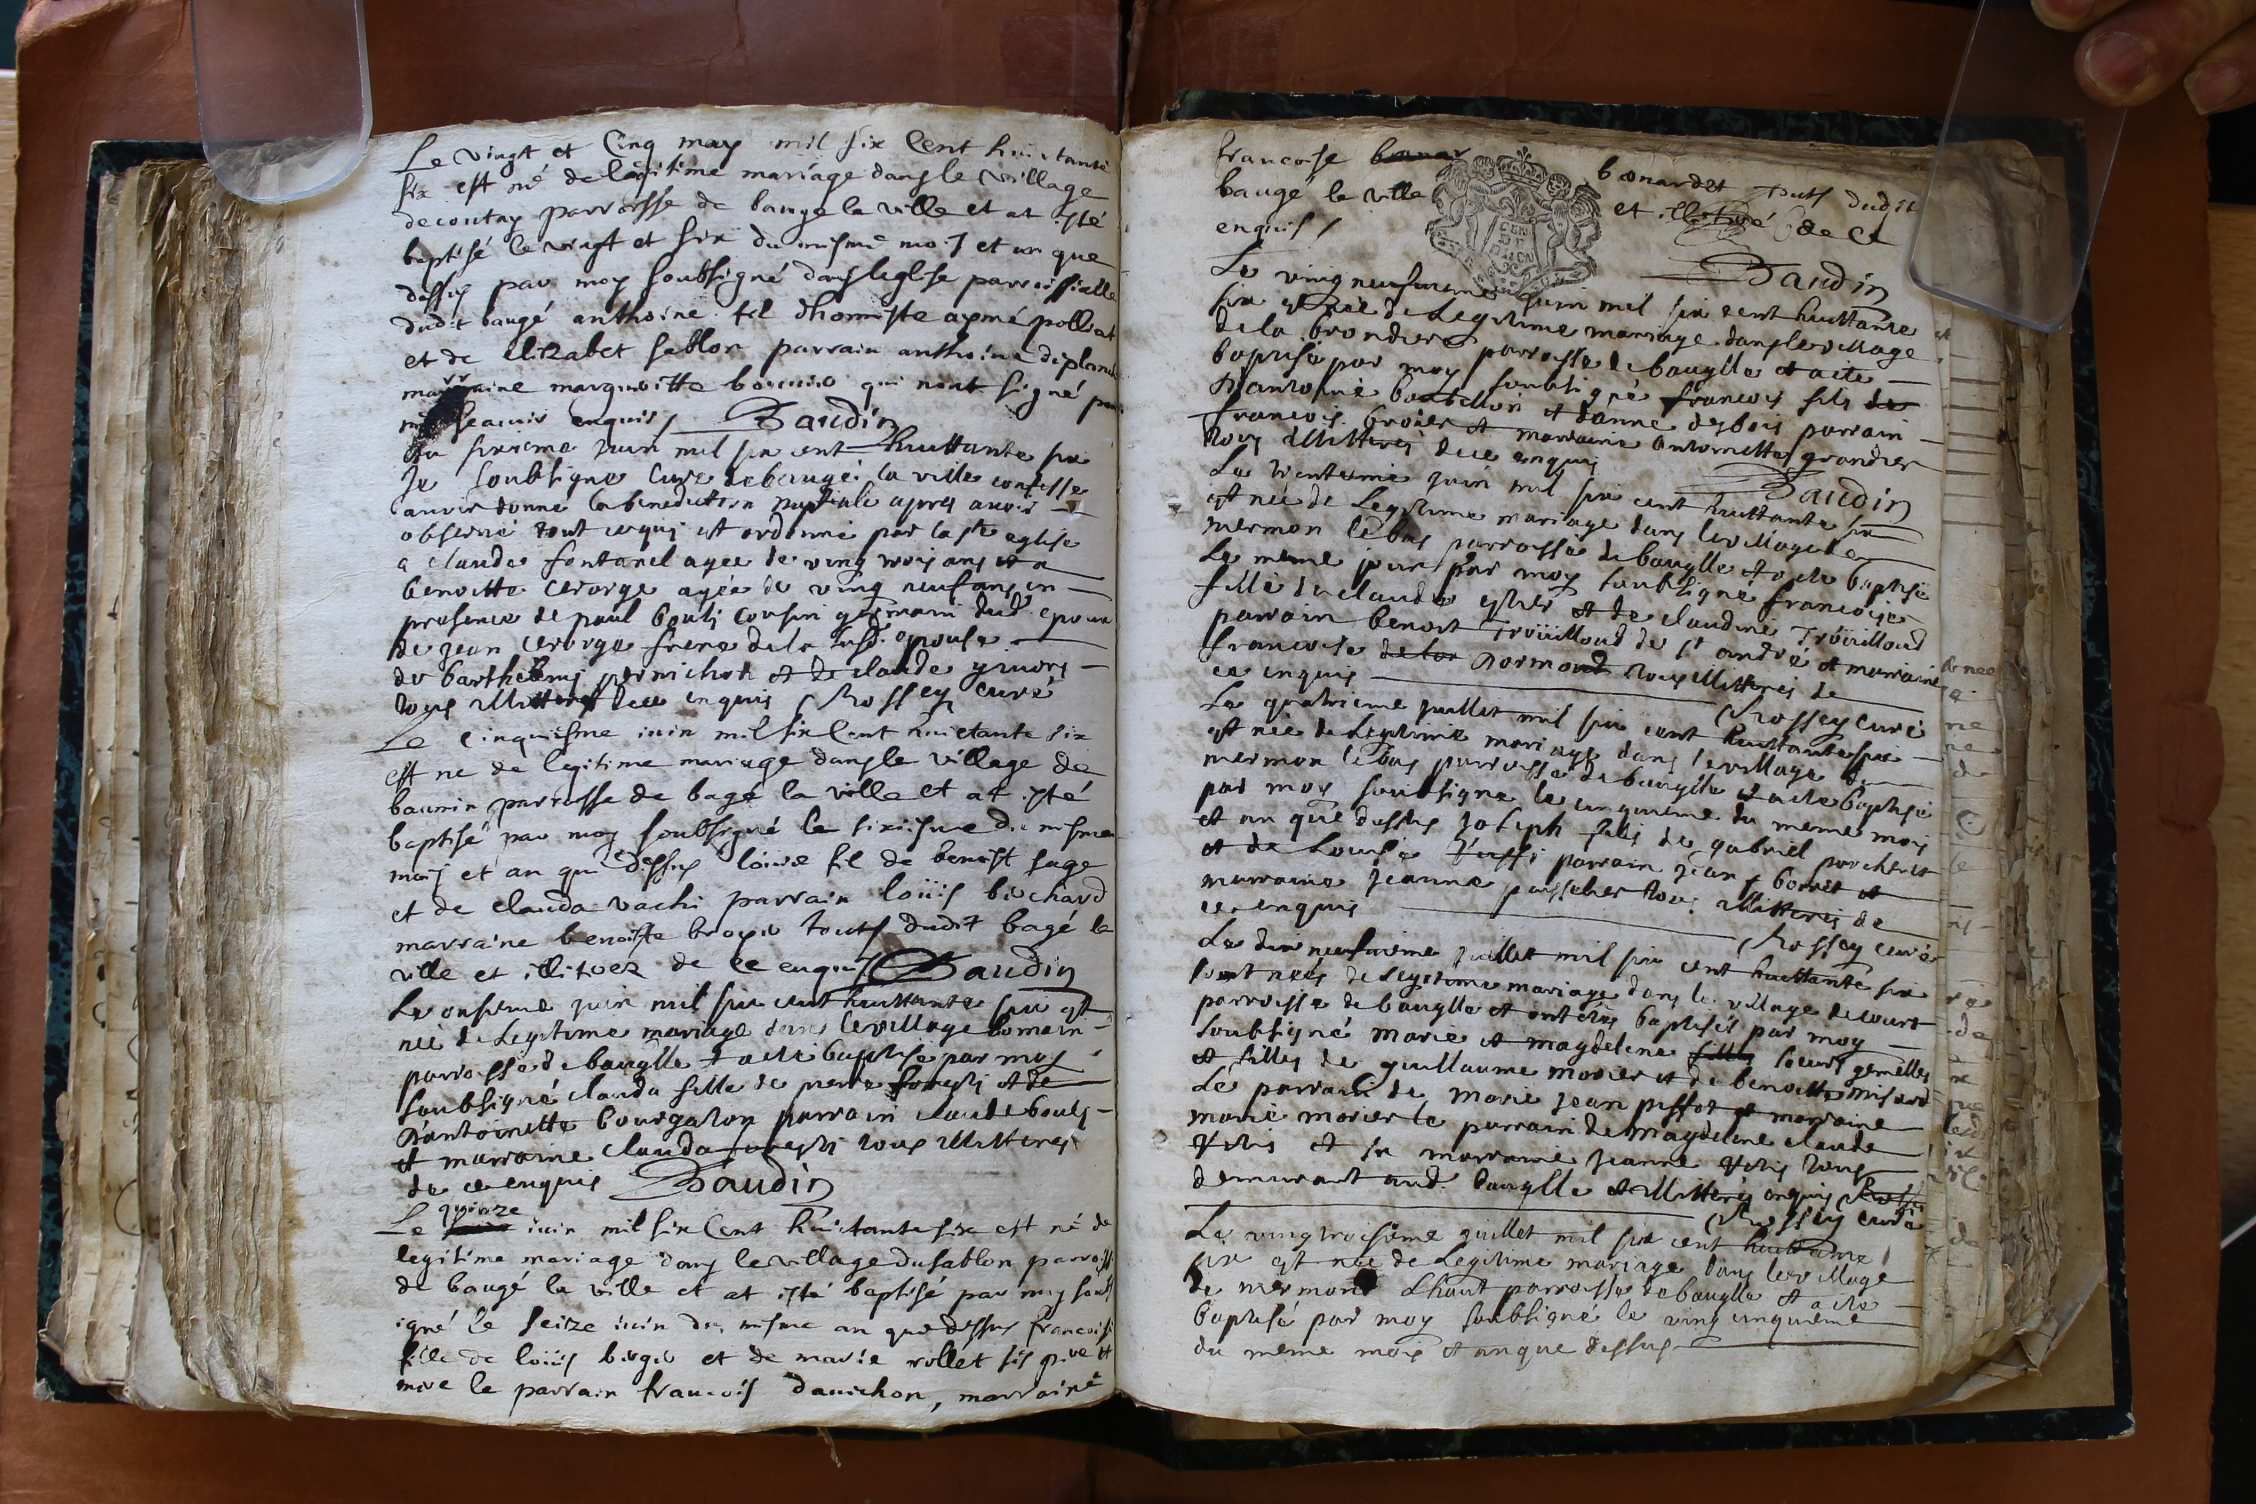 Le vingt et Cinq may mil six Cent huictante
six est né de legitime mariage dans le village
de coutay parroisse de bauge la ville et at esté
baptisé le vingt et six du misme mois et an que
dessus par moy soubsigné dans leglise parroissialle
dudit baugé anthoine fil dhonniste aymé polliat
et de elizabet sablon parrain anthoine deplanche
marraine margueritte qui nont signé pour
ne scauoir enquis / Baudin
Du sixieme juin mil six cent huittante six
Je soubsigne Curé de baugé la ville confesse
auoir donne la benediction nuptiale apres auoir
obserué tout ce qui est ordonné par la ste eglise
a claude fontanel agee de ving trois ans et a
benoitte George agée de ving neuf ans en
presence de paul bouli cousin germain dud. epoux
de jean George frere de la susd. epouse
de barthelemj pernichon et de claude
tous illitteres de ce enquis Rossey curé
Le cinquiesme iuin mil six Cent huictante six
est ne de legitime mariage dans le village de
baunin parroisse de bagé la ville et at esté
baptisé par moy soubsigné le sixiisme du misme
mois et an que dessus loiiis fil de benoist sage
et de clauda vachi parrain loiiis bichard
marraine benoiste broyer touts dudit bagé la
ville et illiterez de ce enquis Baudin
Le onsieme juin mil six cent huittante six est
née de Legitime mariage dans le village
parroisse de bauglle et a eté baptisé par moy
soubsigné clauda fille de pierre foresti et de
D'antoinette bourgalon parrain claude bouli
et marraine clauda foresti tous illitteres
de ce enquis Baudin
quinze
Le iuin mil six Cent huictante six est né de
legitime mariage dans le village du sablon parroisse
de baugé la ville et at esté baptisé par moy soubs
igné le seize iuin du misme an que dessus francoise
fille de loiiis birger et de marie rollet sis pere et
mere le parrain francois dauichon, marraine
francoise
bonardet touts dudit
baugé la ville et illetteré de ce
enquis /
Baudin
Le ving neufuieme juin mil six cent huittante
six est né de Legitime mariage dans le village
de la brondiere parroisse de bauglle et a eté
baptisé par moy soubsigné francois fils de
D'antoine borbillon et danne desbois parrain
francois broier et marraine antoinette grandier
tous illitteres de ce enquis
Baudin
Le trentieme juin mil six cent huittante six
est née de Legitime mariage dans le village de
mermon le bas parroisse de bauglle et a ete baptisé
le meme jour par moy soubsigné francoise
fille de claude et de claudine Troüilloud
parrain benoit Troüilloud de st andré et marraine
francoise Dormond tous illitteres de
ce enquis
Rossey curé
Le quatrieme juillet mil six cent huittante six
est née de Legitime mariage dans le village de
mermon le bas parroisse de baugille et a ete baptisé
par moy soubsigne le cinquieme du meme mois
et an que dessus joseph fils de gabriel porcheret
et de Louise parrain jean borret et
marraine jeanne tous illitteres de
ce enquis
Rossey curé
Le dix neufuieme juillet mil six cent huittante six
sont nées de Legitime mariage dans le village de court
parroisse de baugille et ont etés baptisés par moy
soubsigné marie et magdelene soeurs gemelles
et filles de guillaume morier et de benoitte misard
Le parrain de marie jean pissot et marraine
marie morier le parrain de magdelene claude
et sa marraine jeanne tous
demurant aud. baugille et illitteres enquis
Rossey curé
Le vingtroisieme juillet mil six cent huittante
six est née de Legitime mariage dans le village
de mermond Lhaut parroisse de baugille et a ete
baptisé par moy soubsigné le ving cinquieme
du meme mois et an que dessus